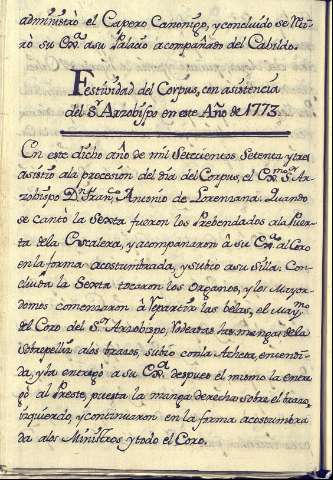 administrò el Capero Canonigo, y concluído se reti-
rò su Exª. a su Palacio acompañado del Cabildo.
Festividad del Corpus, con asistencia
del Sr. Arzobispo en este Año de 1773
En este dicho año de mil Setecientos, Setenta y tres
asistió ala procesion del dia del Corpus, el Exmo. Sr. Ar-
zobispo Dn. Franco. Antonio de Lorenzana. Quando
se cantó la Sexta fueron los Prebendados ala Puer-
ta dela Escalera, y acompañaron à su Exª. al Coro
en la forma acostumbrada, y subió a su silla. Con-
cluida la Sexta tocaron los Organos, y los Mayor-
domos comenzaron à repartir las belas, el Maymo.
del Coro del Sr. Arzobispo, rodeatas las mangas dela
sobrepelliz alos brazos, subió con la Acheta, encendi-
da, y la entregó a su Exª. despues el mismo la entre
gó al Preste, puesta la manga derecha sobre el brazo
izquierdo, y continuaron en la forma acostumbra
da alos Ministros y todo el Coro.